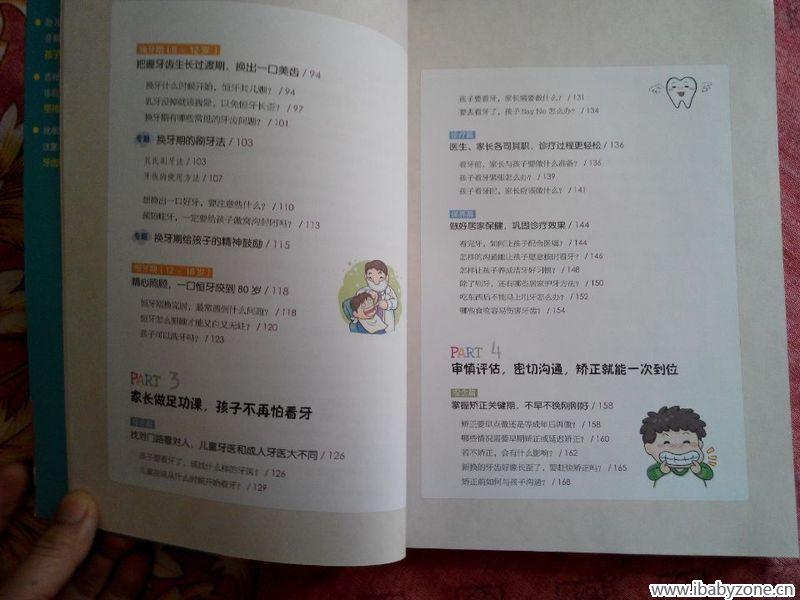 换牙期（6－12岁）
把握牙齿生长过渡期，换出一口美齿 / 94
换牙什么时候开始，恒牙共几颗？ / 94
乳牙没掉就该拔除，以免恒牙长歪？ / 97
换牙期有哪些常见的牙齿问题？ / 101
专题 换牙期的刷牙法 / 103
贝氏刷牙法 / 103
牙线的使用方法 / 107
想换出一口好牙，要注意些什么？ / 110
预防蛀牙，一定要给孩子做窝沟封闭吗？ / 113
专题 换牙期给孩子的精神鼓励 / 115
恒牙期（12－18岁）
精心照顾，一口恒牙咬到80岁 / 118
恒牙期换完时，最常遇到什么问题？ / 118
恒牙怎么照顾才能又白又无蛀？ / 120
孩子可以洗牙吗？ / 123
PART 3
家长做足功课，孩子不再怕看牙
观念篇
找对门路看对人，儿童牙医和成人牙医大不同 / 126
孩子要看牙了，该找什么样的牙医？ / 126
儿童应该从什么时候开始看牙？ / 129
孩子要看牙，家长需要做什么？ / 131
要去看牙了，孩子Say No怎么办？ / 134
诊疗篇
医生、家长各司其职，诊疗过程更轻松 / 136
看牙前，家长与孩子要做什么准备？ / 136
孩子看牙紧张怎么办？ / 139
孩子看牙时，家长应该做什么？ / 141
保养篇
做好居家保健，巩固诊疗效果 / 144
看完牙，如何让孩子配合医嘱？ / 144
怎样的沟通能让孩子愿意按时看牙？ / 146
怎样让孩子养成洁牙好习惯？ / 148
除了刷牙，还有哪些居家护牙方法？ / 150
吃东西后不能马上刷牙怎么办？ / 152
哪些食物容易伤害牙齿？ / 154
PART 4
审慎评估，密切沟通，矫正就能一次到位
观念篇
掌握矫正关键期，不早不晚刚刚好 / 158
矫正要早点做还是等成年后再做？ / 158
哪些情况需要早期矫正或延迟矫正？ / 160
若不矫正，会有什么影响？ / 162
新换的牙齿好像长歪了，要赶快矫正吗？ / 165
矫正前如何与孩子沟通？ / 168
www.ibabyzone.cn